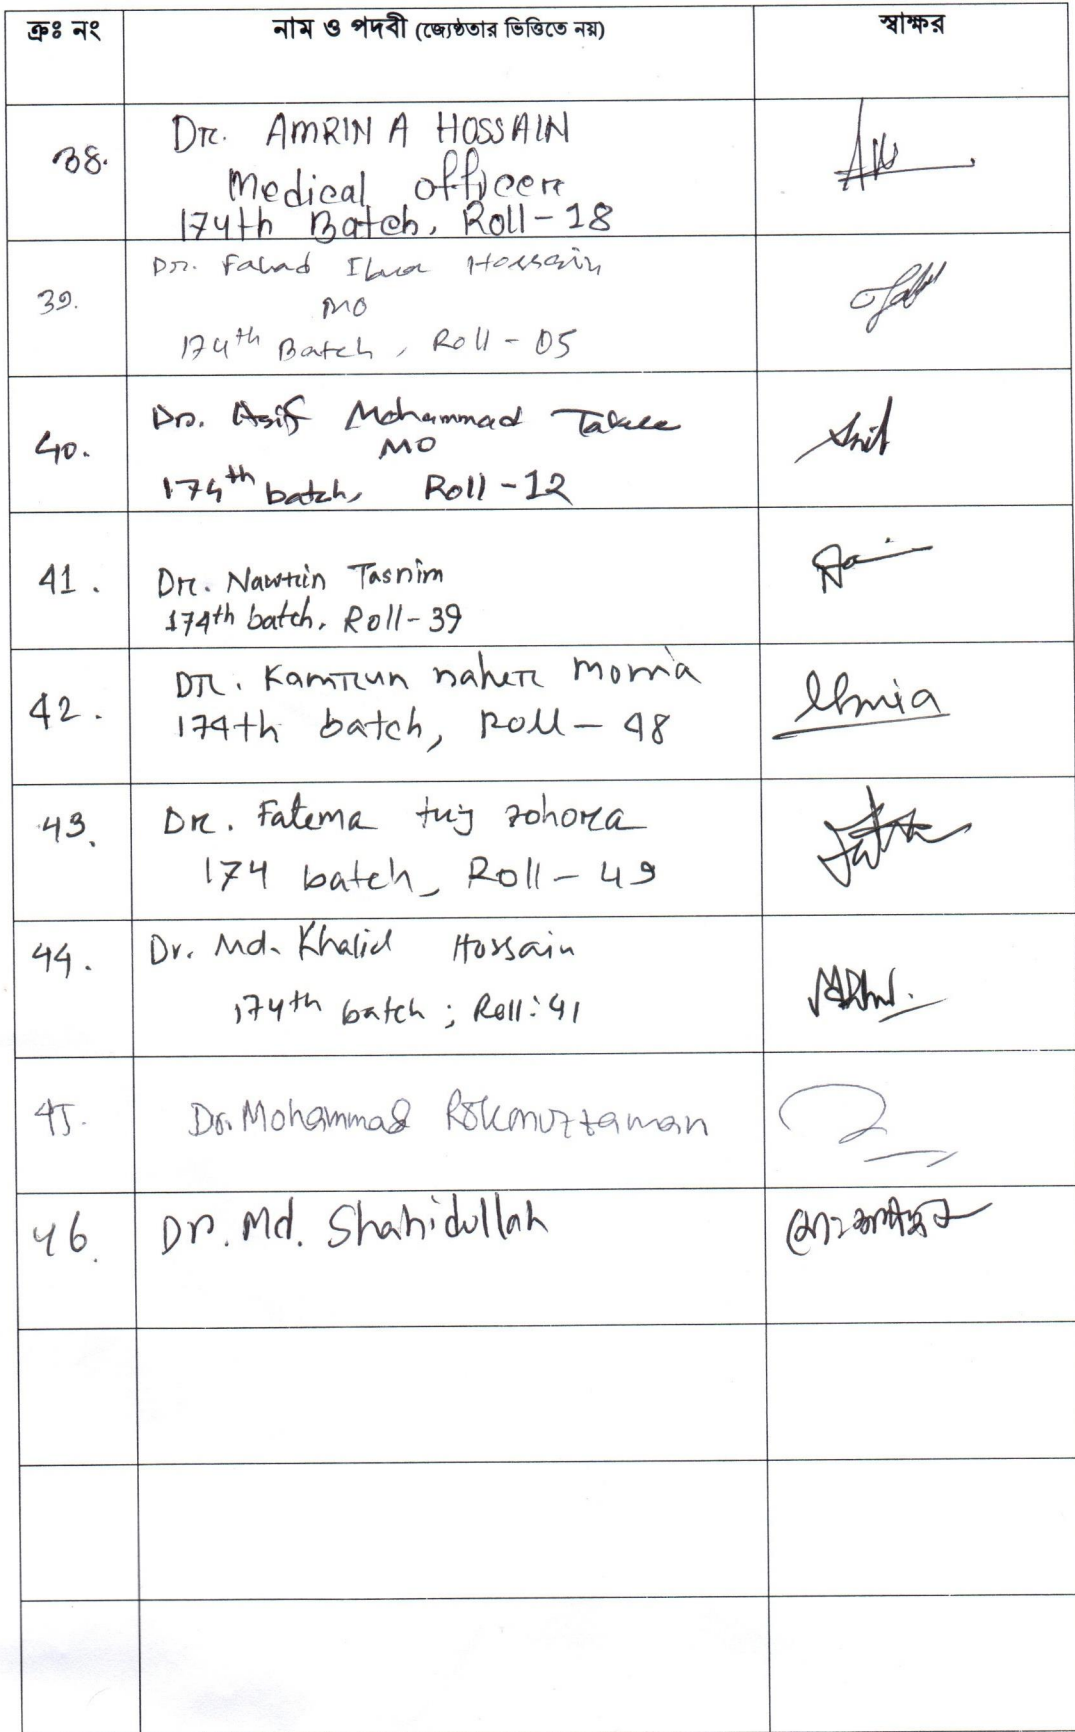 ক্রঃ নং নাম ও পদবী (জ্যেষ্ঠতার ভিত্তিতে নয়) স্বাক্ষর
38. Dr. AMRIN A HOSSAIN
Medical officer
174th Batch, Roll-18
Dr. Fahad Hossain
39. MO
174th Batch, Roll-05
Dr. Asif Mohammad
40. MO
174th batch, Roll-12
41. Dr. Nawrin Tasnim
174th batch, Roll-39
Dr. Kamrun naher
42. 174th batch, Roll-48
43. Dr. Fatema tuj zohora
174 batch, Roll-49
44. Dr. Md. Khalid Hossain
174th batch; Roll:41
45. Dr. Mohammad Rokonuzzaman
46. Dr. Md. Shahidullah